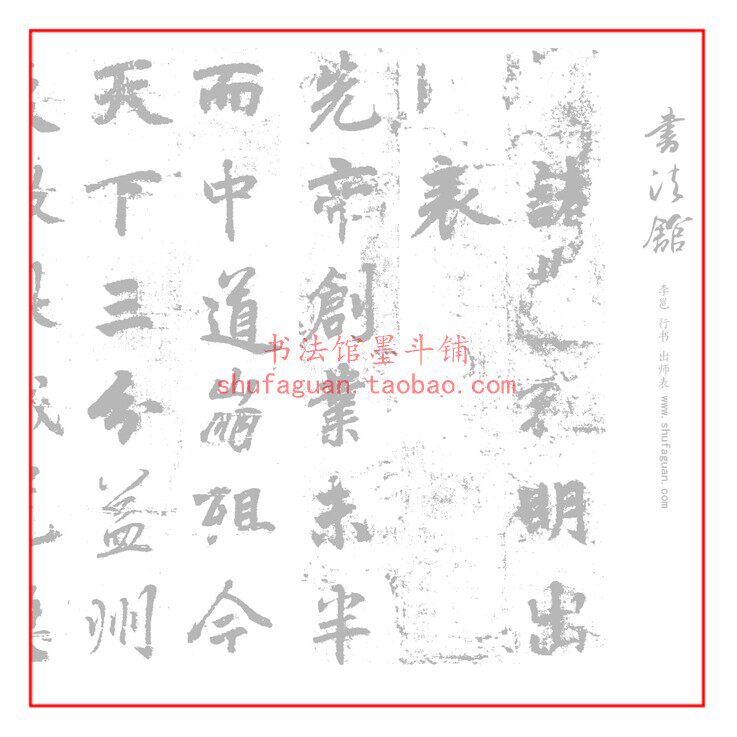 書法舘
李邕 行书 出师表 www.shufaguan.com
諸 明出
表
先帝創業未半
而中道崩殂今
天下三分益州
书法馆墨斗铺
shufaguan.taobao.com